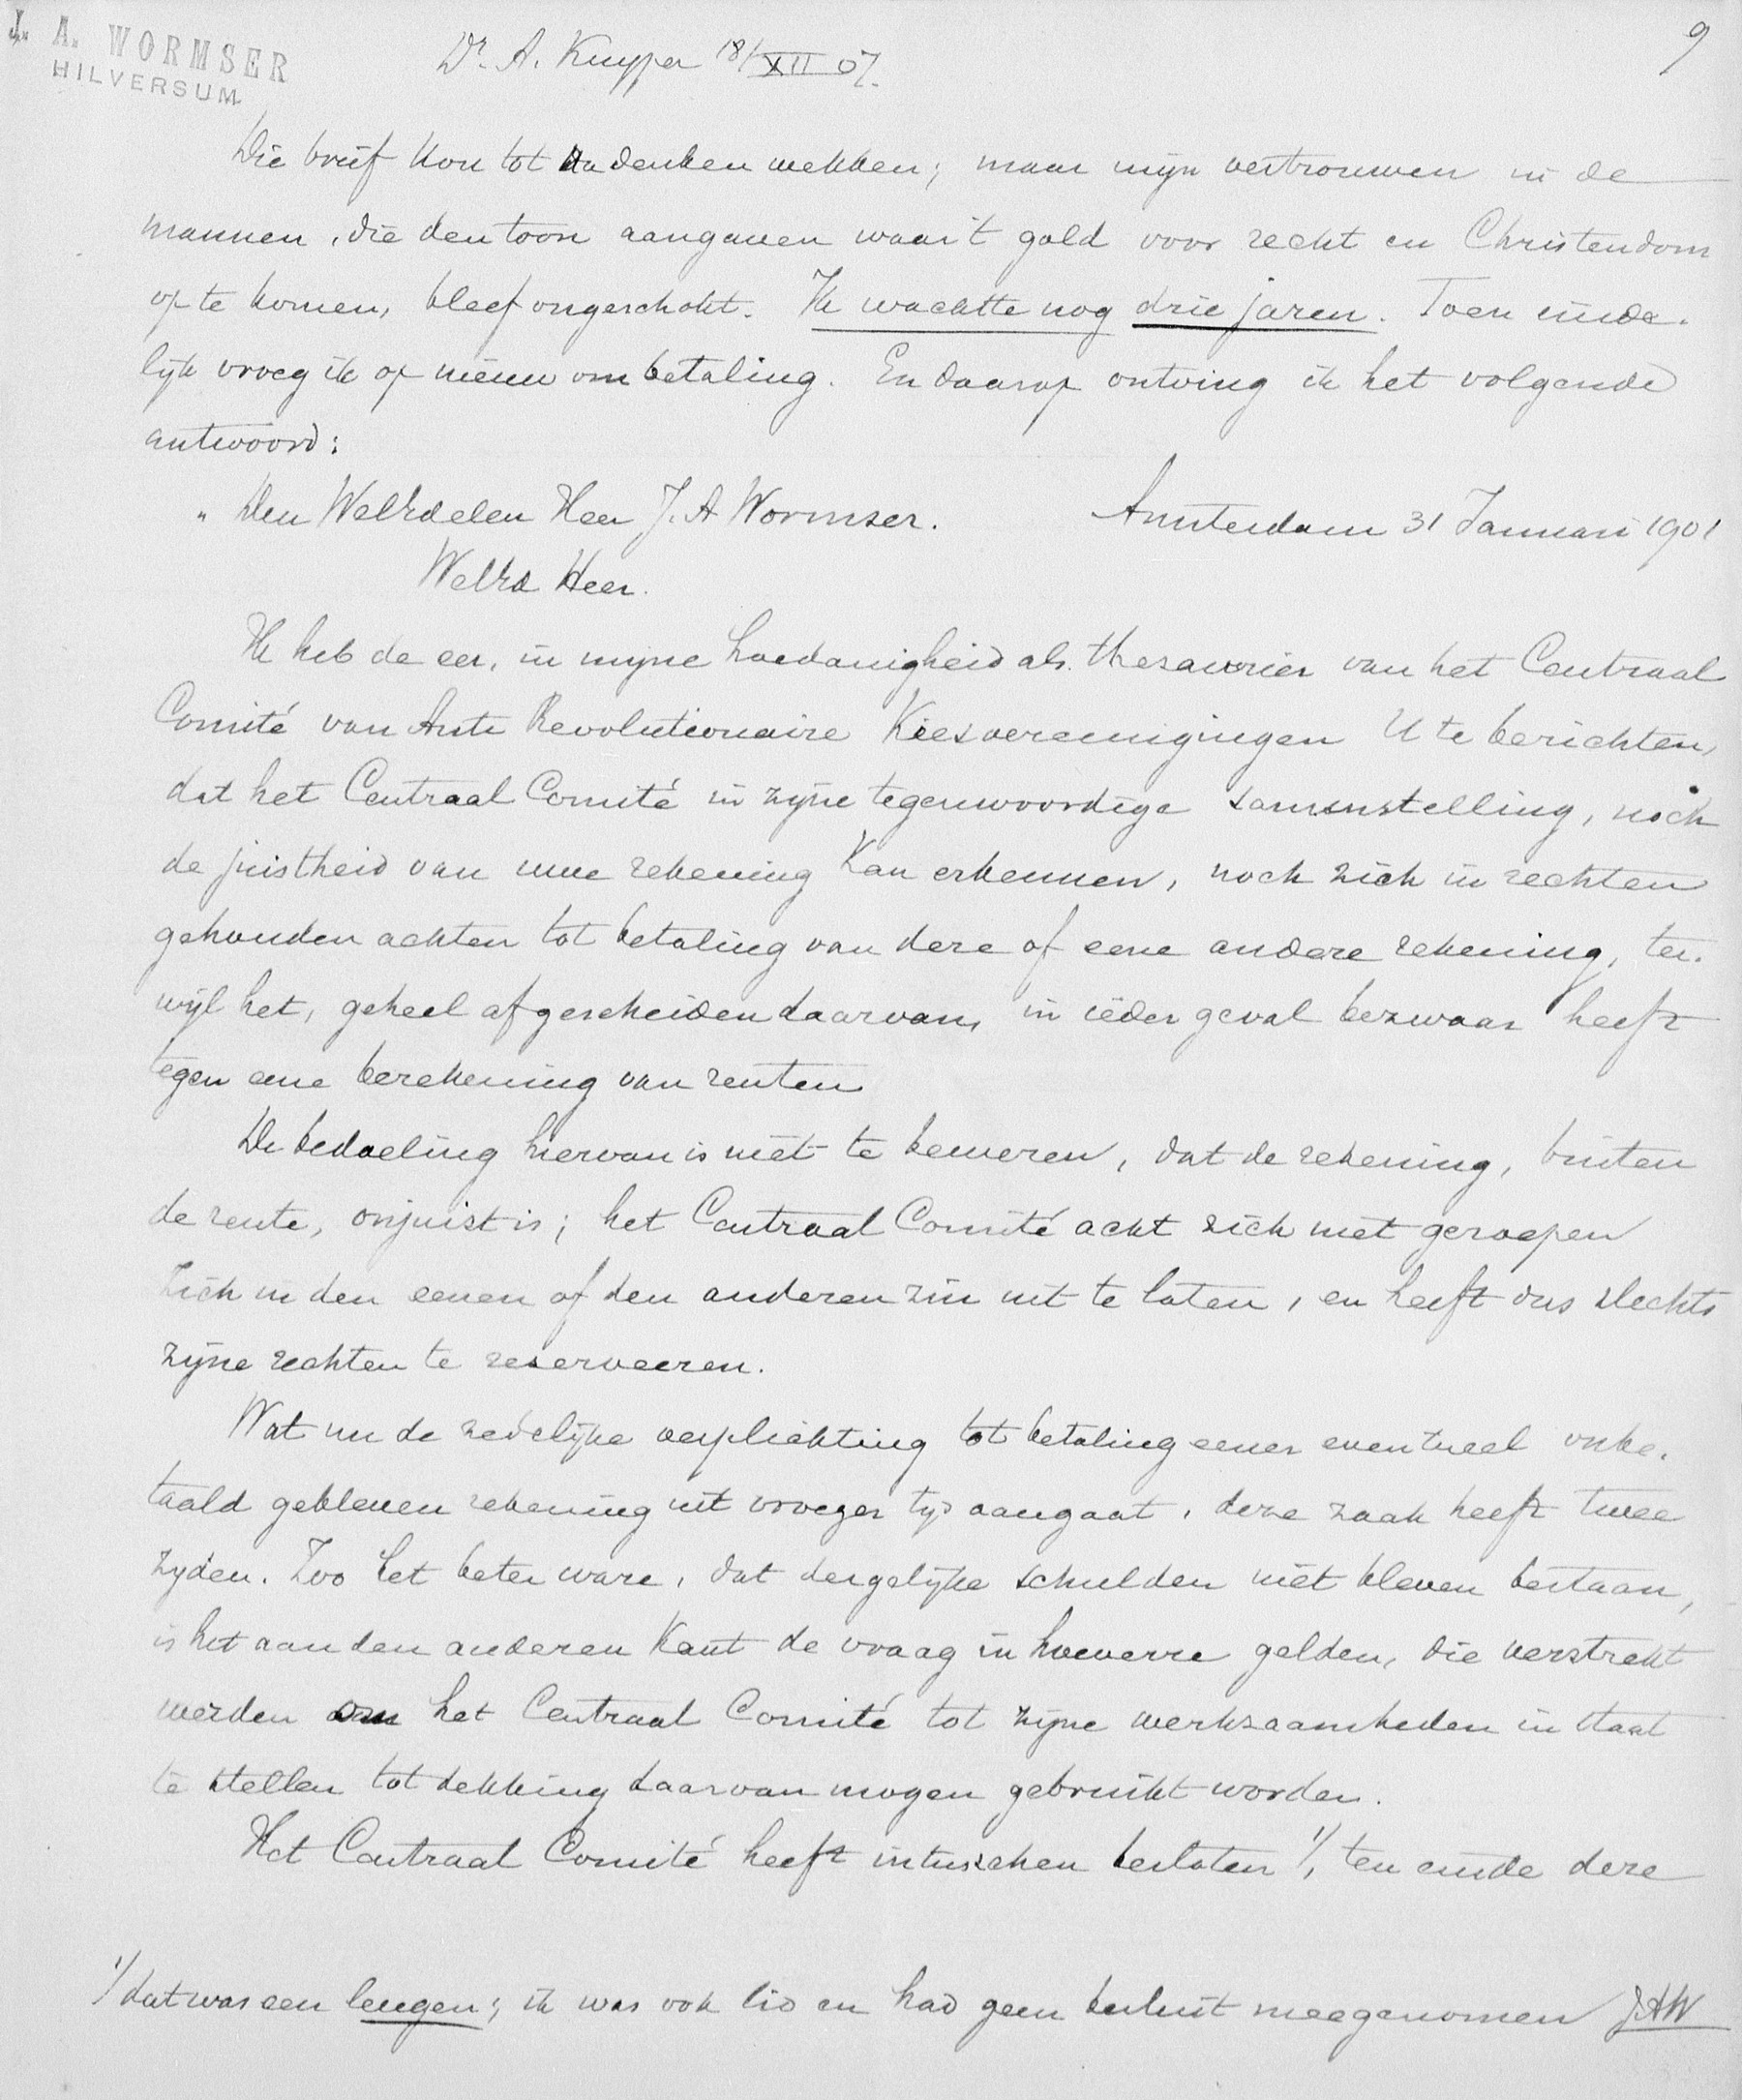 J. A. WORMSER
HILVERSUM
Dr. A. Kuyper 18/XII 07.
9
Die brief kon tot nadenken wekken; maar mijn vertrouwen in de
mannen, die den toon aangaven waar 't gold voor recht en Christendom
op te komen, bleef ongeschokt. Ik wachtte nog drie jaren. Toen einde-
lijk vroeg ik op nieuw om betaling. En daarop ontving ik het volgende
antwoord:
„ Den WelEdelen Heer J. A Wormser. Amsterdam 31 Januari 1901
WelEd Heer.
Ik heb de eer, in mijne hoedanigheid als thesaurier van het Centraal
Comité van Anti Revolutionaire Kiesvereenigingen U te berichten,
dat het Centraal Comité in zijne tegenwoordige samenstelling, noch
de juistheid van uwe rekening kan erkennen, noch zich in rechten
gehouden achten tot betaling van deze of eene andere rekening, ter-
wijl het, geheel afgescheiden daarvan, in ieder geval bezwaar heeft
tegen eene berekening van renten
De bedoeling hiervan is niet te beweren, dat de rekening, buiten
de rente, onjuist is; het Centraal Comité acht zich niet geroepen
zich in den eenen of den anderen zin uit te laten, en heeft dus slechts
zijne rechten te reserveeren.
Wat nu de zedelijke verplichting tot betaling eener eventueel onbe-
taald gebleven rekening uit vroeger tijd aangaat, deze zaak heeft twee
zijden. Zoo het beter ware, dat dergelijke schulden niet bleven bestaan,
is het aan den anderen kant de vraag in hoeverre gelden, die verstrekt
werden om het Centraal Comité tot zijne werkzaamheden in staat
te stellen tot dekking daarvan mogen gebruikt worden.
Het Centraal Comité heeft intusschen besloten 1/, ten einde deze
1/ dat was een leugen; ik was ook lid en had geen besluit meegenomen JAW